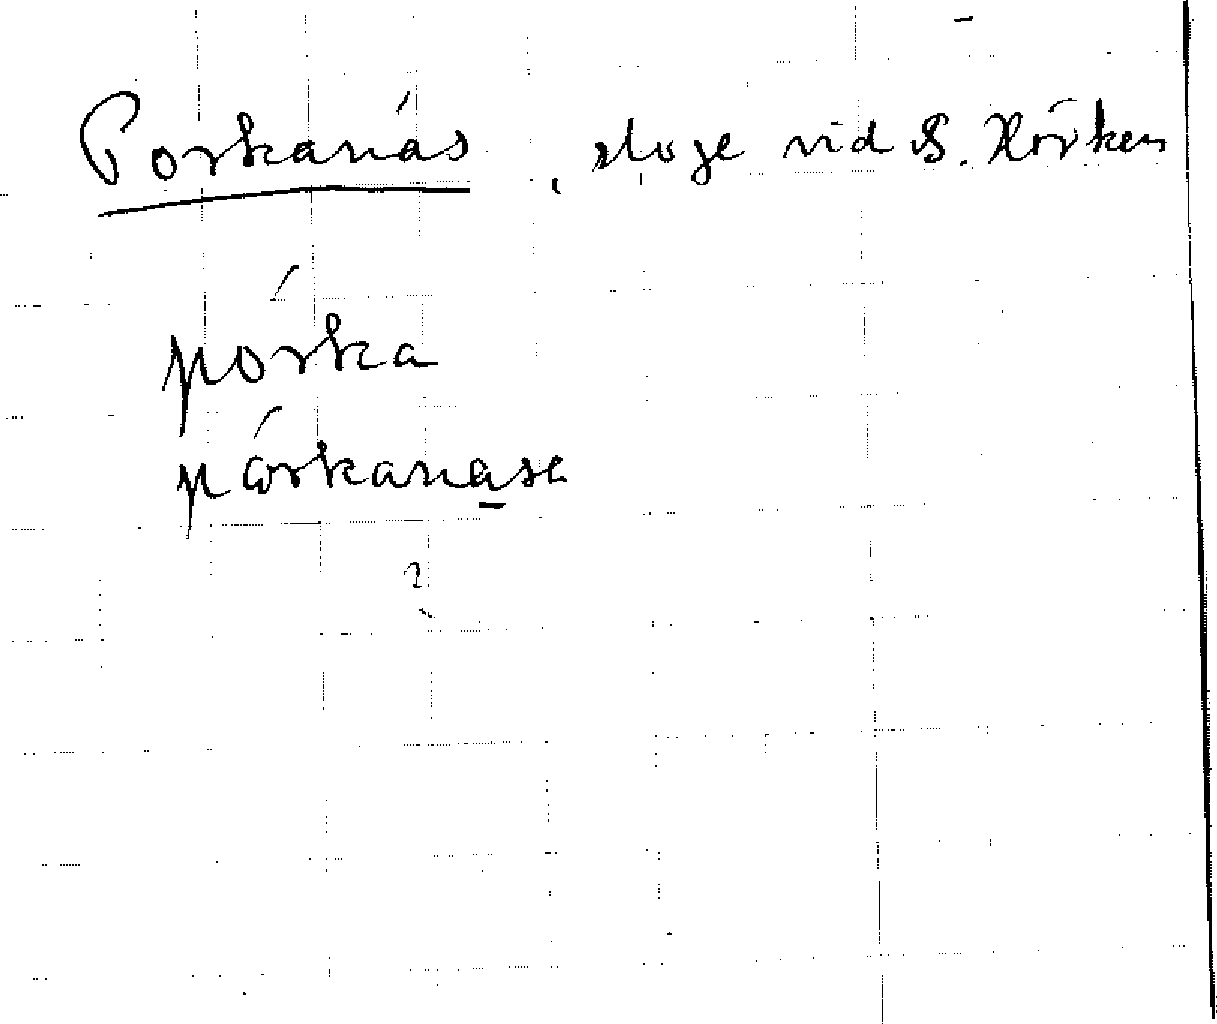 Porkanás, sloge vid S. Hörken
pórka
pórkanasa
?